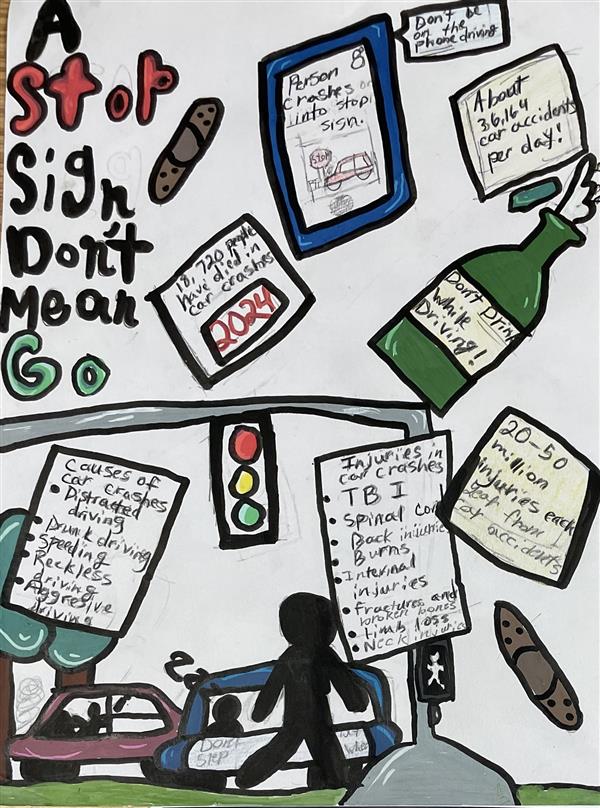 A
Stop
Sign
Don't
Mean
Go
Don't be
on the
phone driving
Person
crashes
into stop
sign.
STOP
About
36,164
car accidents
per day!
18,720 people
have died in
car crashes
2024
Don't Drink
While
Driving!
20-50
million
injuries each
year from
car accidents
Causes of
car crashes
Distracted
driving
Drunk driving
Speeding
Reckless
driving
Aggresive
driving
Injuries in
car crashes
TBI
Spinal Cord
Back injuries
Burns
Internal
injuries
Fractures and
broken bones
Limb loss
Neck injuries
ZZ
Don't
Sleep